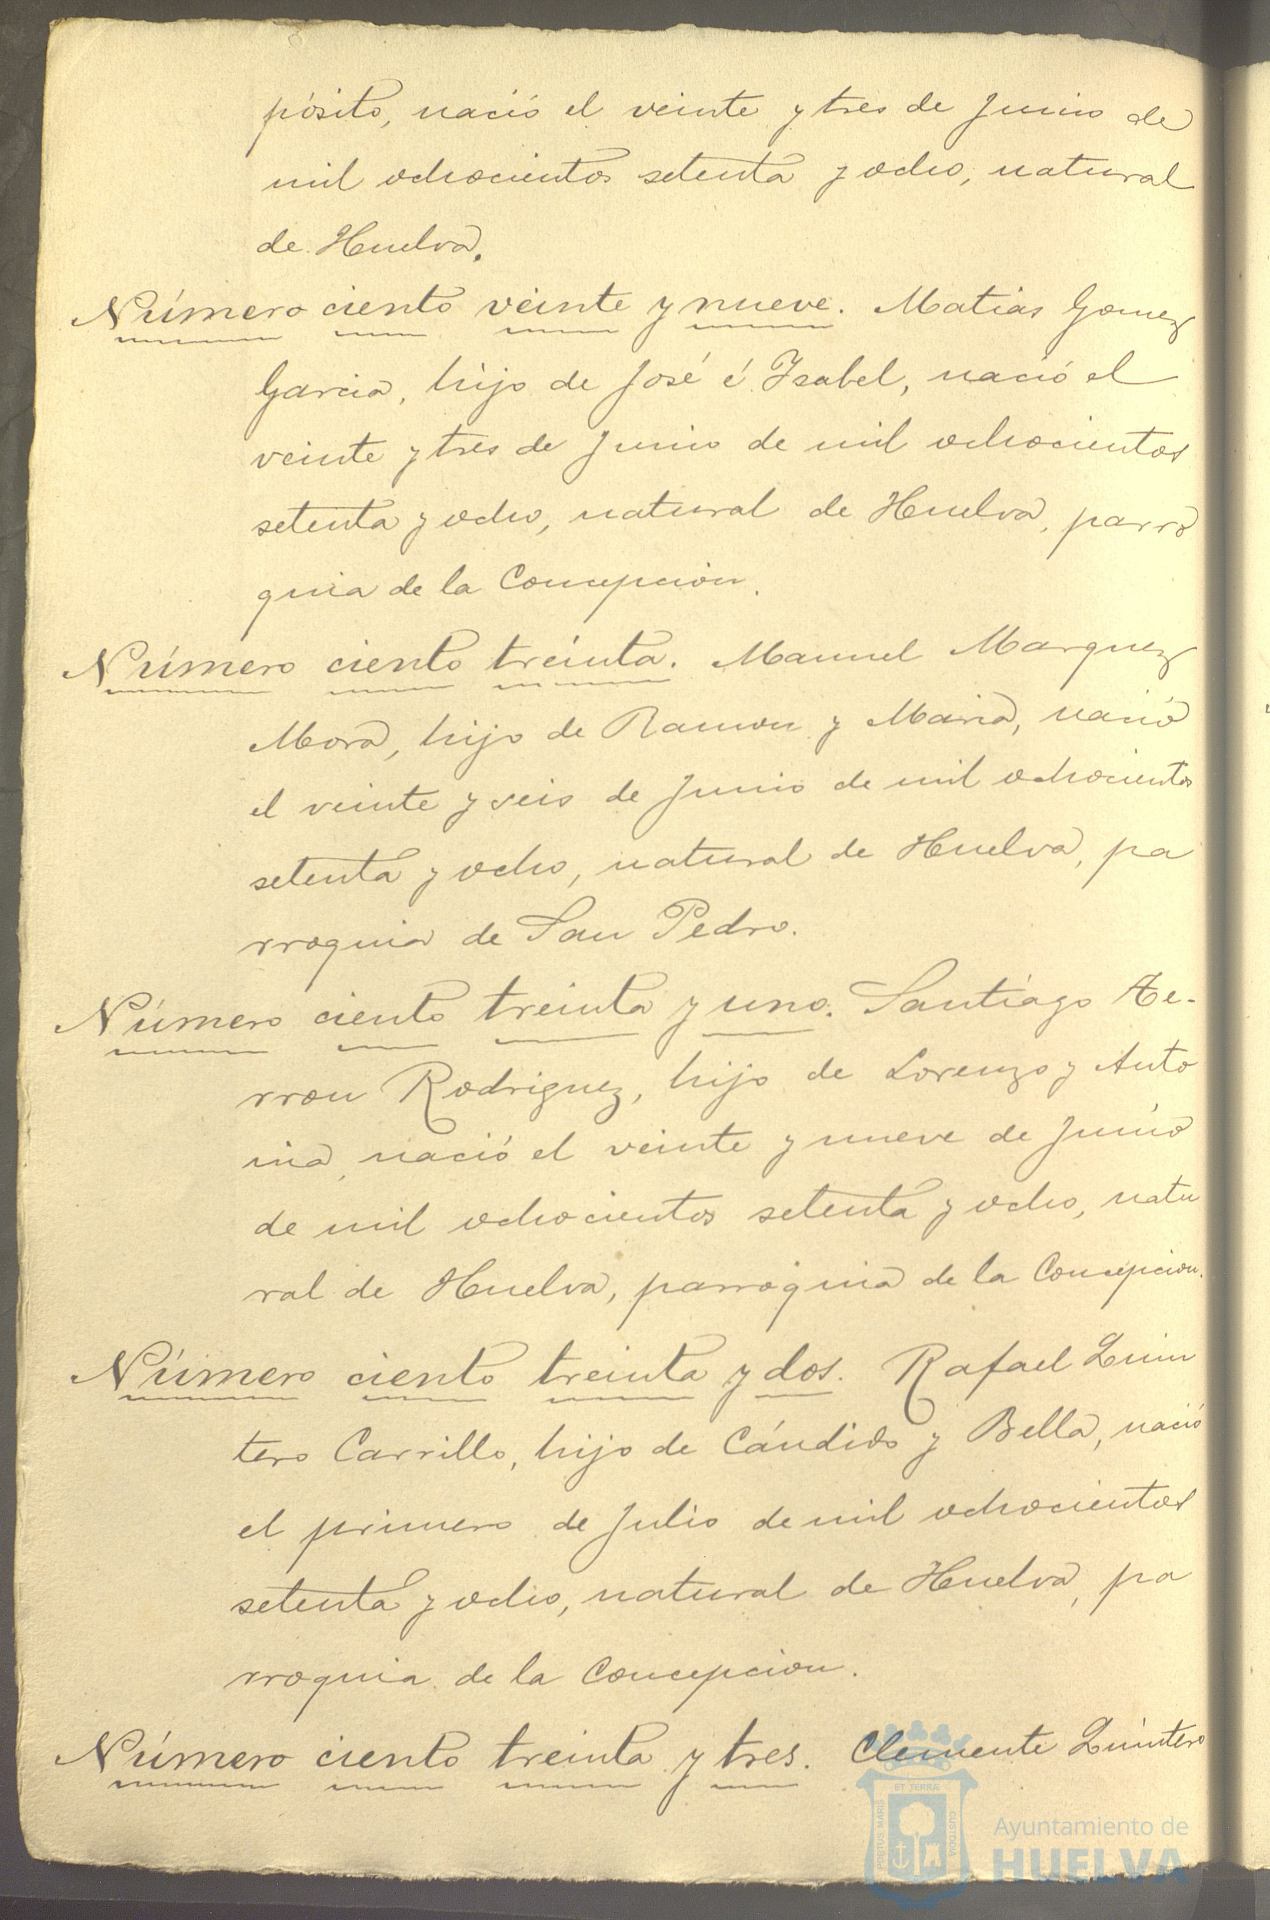 pósito, nació el veinte y tres de Junio de
mil ochocientos setenta y ocho, natural
de Huelva.
Número ciento veinte y nueve. Matias Gomez
Garcia, hijo de José é Isabel, nació el
veinte y tres de Junio de mil ochocientos
setenta y ocho, natural de Huelva, parro
quia de la Concepcion.
Número ciento treinta. Manuel Marquez
Mora, hijo de Ramon y Maria, nació
el veinte y seis de Junio de mil ochocientos
setenta y ocho, natural de Huelva, pa
rroquia de San Pedro.
Número ciento treinta y uno. Santiago Te-
rron Rodriguez, hijo de Lorenzo y Anto
nia, nació el veinte y nueve de Junio
de mil ochocientos setenta y ocho, natu
ral de Huelva, parroquia de la Concepcion.
Número ciento treinta y dos. Rafael Quin
tero Carrillo, hijo de Cándido y Bella, nació
el primero de Julio de mil ochocientos
setenta y ocho, natural de Huelva, pa
rroquia de la Concepcion.
Número ciento treinta y tres. Clemente Quintero
ET TERRÆ
PORTUS MARIS
CUSTODIA
Ayuntamiento de
HUELVA